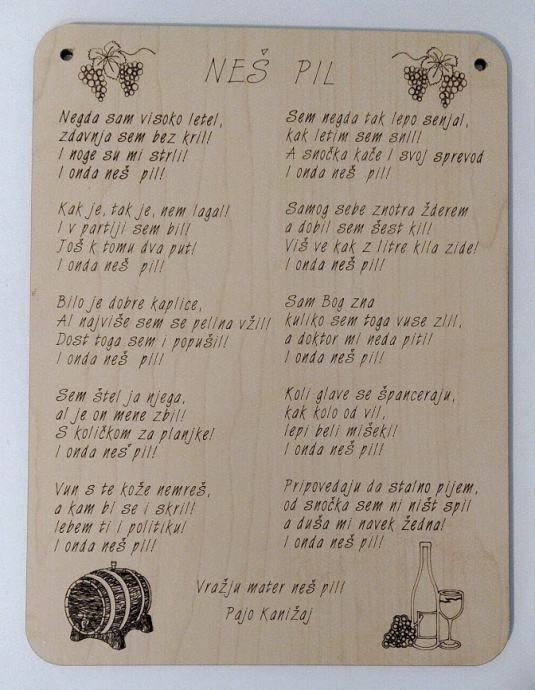 NEŠ PIL
Negda sam visoko letel,
zdavnja sem bez kril!
I noge su mi strli!
I onda neš pil!
Kak je, tak je, nem lagal!
I v partiji sem bil!
Još k tomu dva put!
I onda neš pil!
Bilo je dobre kaplice,
Al najviše sem se pelina vžil!
Dost toga sem i popušil!
I onda neš pil!
Sem štel ja njega,
al je on mene zbil!
S količkom za planjke!
I onda neš pil!
Vun s te kože nemreš,
a kam bi se i skril!
lebem ti i politiku!
I onda neš pil!
Sem negda tak lepo senjal,
kak letim sem snil!
A snočka kače i svoj sprevod
I onda neš pil!
Samog sebe znotra žderem
a dobil sem šest kil!
Viš ve kak z litre kila zide!
I onda neš pil!
Sam Bog zna
kuliko sem toga vuse zlil,
a doktor mi neda piti!
I onda neš pil!
Koli glave se španceraju,
kak kolo od vil,
lepi beli mišeki!
I onda neš pil!
Pripovedaju da stalno pijem,
od snočka sem ni ništ spil
a duša mi navek žedna!
I onda neš pil!
Vražju mater neš pil!
Pajo Kanižaj